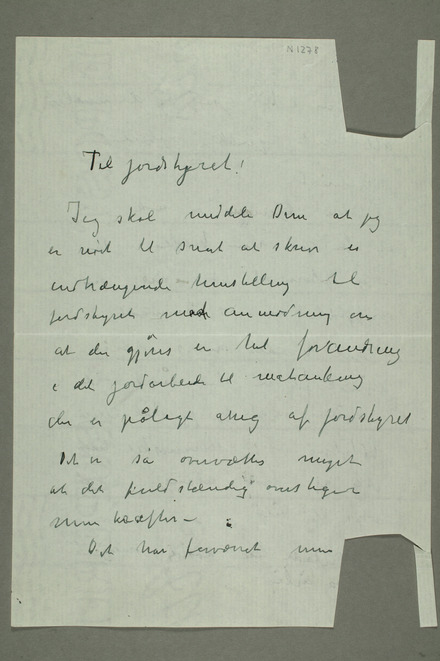 N 1278
Til jordstyret!
Jeg skal meddele Dem at jeg
er nød til snat at skrive en
indtrængende henstilling til
jordstyret med anmodning om
at der gjøres en hel forandring
i det jordarbeide til matauking
der er pålagt mig af jordstyret
Det er så overvættes meget
at det fuldstændig overstiger
mine kræfter –
Det har forværret min